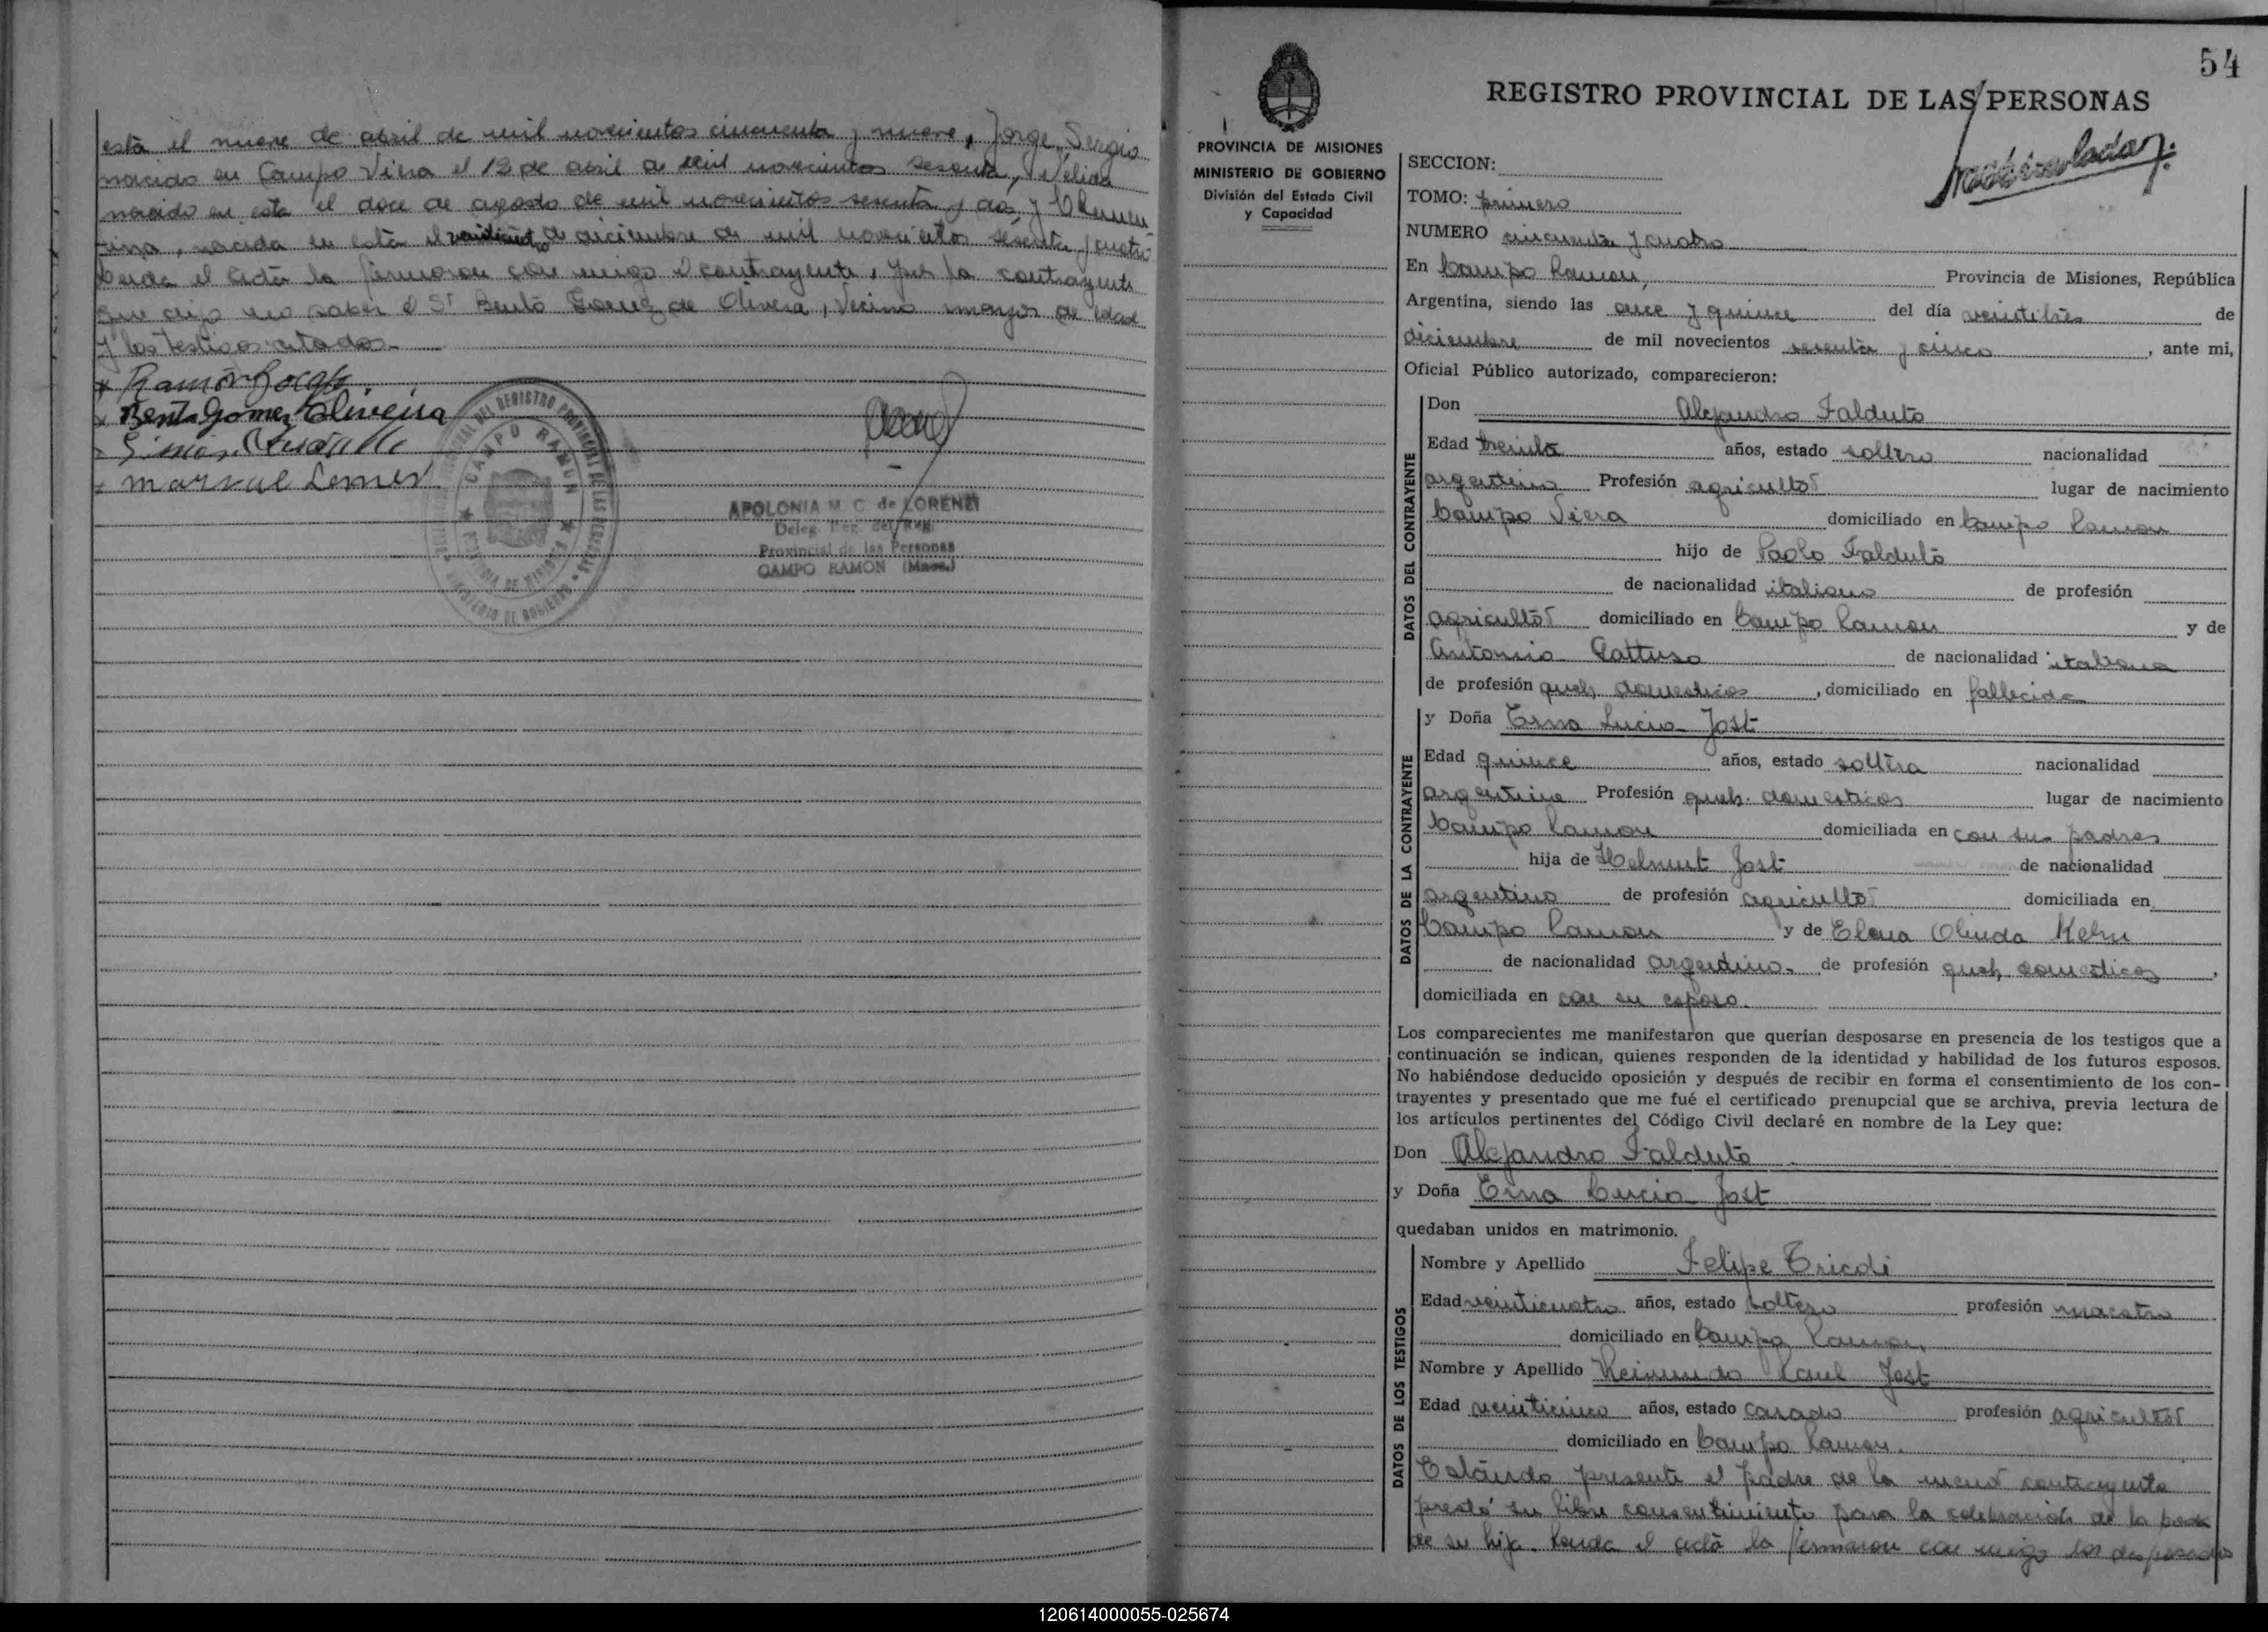 está el nueve de abril de mil novecientos cincuenta y nueve, Jorge Sergio
nacido en Campo Viera el 12 de abril de mil novecientos sesenta, Nelida
nacido en esta el doce de agosto de mil novecientos sesenta y dos, y
nacida en está el de diciembre de mil novecientos sesenta y cuatro
Leida el acta la firmaron con migo el contrayente, por la contrayente
que dijo no saber el Sr Bento Gomez de Olivera, Vecino mayor de edad
y los testigos citados.
Ramón
Bento Gomez Oliveira
Marsue Lemes
DEL REGISTRO PROVINCIAL DE LAS PERSONAS
CAMPO RAMON
PROVINCIA DE MISIONES
MINISTERIO DE GOBIERNO
APOLONIA M. C. de LORENZI
Deleg. Rec. del Reg.
Provincial de las Personas
CAMPO RAMON (Mnes.)
54
REGISTRO PROVINCIAL DE LAS PERSONAS
PROVINCIA DE MISIONES
MINISTERIO DE GOBIERNO
División del Estado Civil
y Capacidad
SECCION:
TOMO: primero
NUMERO cincuenta y cuatro
En Campo Ramon, Provincia de Misiones, República
Argentina, siendo las once y quince del día veintitrés de
diciembre de mil novecientos sesenta y cinco, ante mi,
Oficial Público autorizado, comparecieron:
DATOS DEL CONTRAYENTE
Don Alejandro Falduto
Edad treinta años, estado soltero nacionalidad
argentino Profesión agricultor lugar de nacimiento
Campo Viera domiciliado en Campo Ramon
hijo de Paolo Falduto
de nacionalidad italiano de profesión
agricultor domiciliado en Campo Ramon y de
Antonia Gattuso de nacionalidad italiana
de profesión queh. domesticos, domiciliado en fallecida
DATOS DE LA CONTRAYENTE
y Doña Erna Lucia Jost
Edad quince años, estado soltera nacionalidad
argentina Profesión queh. domesticos lugar de nacimiento
Campo Ramon domiciliada en con sus padres
hija de Helmut Jost de nacionalidad
argentino de profesión agricultor domiciliada en
Campo Ramon y de Elena Olinda Kehn
de nacionalidad argentina de profesión queh, domesticos,
domiciliada en con su esposo.
Los comparecientes me manifestaron que querían desposarse en presencia de los testigos que a
continuación se indican, quienes responden de la identidad y habilidad de los futuros esposos.
No habiéndose deducido oposición y después de recibir en forma el consentimiento de los con-
trayentes y presentado que me fué el certificado prenupcial que se archiva, previa lectura de
los artículos pertinentes del Código Civil declaré en nombre de la Ley que:
Don Alejandro Falduto
y Doña Erna Lucia Jost
quedaban unidos en matrimonio.
DATOS DE LOS TESTIGOS
Nombre y Apellido Felipe Tricoli
Edad veinticuatro años, estado soltero profesión maestro
domiciliado en Campo Ramon,
Nombre y Apellido Reimundo Raul Jost
Edad veinticinco años, estado casado profesión agricultor
domiciliado en Campo Ramon.
Estando presente el padre de la menor contrayente
prestó su libre consentimiento para la celebración de la boda
de su hija. Leida el acta la firmaron con migo los desposados
120614000055-025674